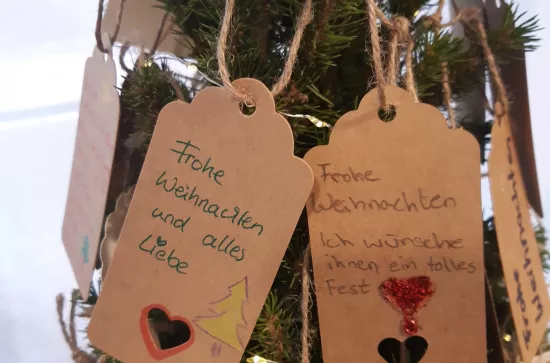 Frohe
Weihnachten
und alles
Liebe
Frohe
Weihnachten
Ich wünsche
ihnen ein tolles
Fest